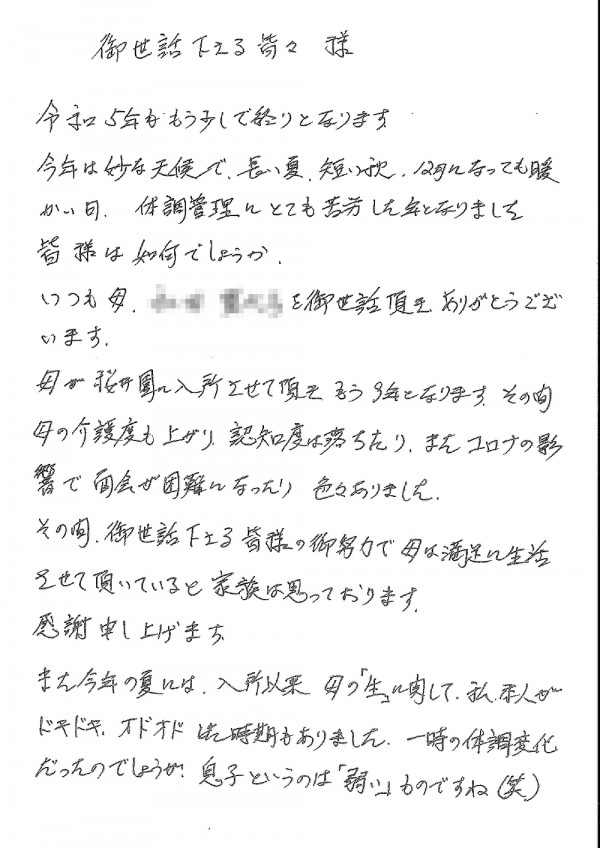 御世話下さる皆々様
令和5年ももう少しで終りとなります
今年は妙な天候で、長い夏、短い秋、12月になっても暖
かい日、体調管理にとても苦労した年となりました
皆様は如何でしょうか、
いつも母、を御世話頂き、ありがとうござ
います。
母が桜井園に入所させて頂き もう3年となります、その間
母の介護度も上がり、認知度は落ちたり、またコロナの影
響で面会が困難になったり 色々ありました、
その間、御世話下さる皆様の御努力で母は満足に生活
させて頂いていると家族は思っております。
感謝申し上げます
また今年の夏には、入所以来 母の「生」に関して、私、本人が
ドキドキ、オドオドした時期もありました、一時の体調変化
だったのでしょうが、息子というのは「弱い」ものですね(笑)